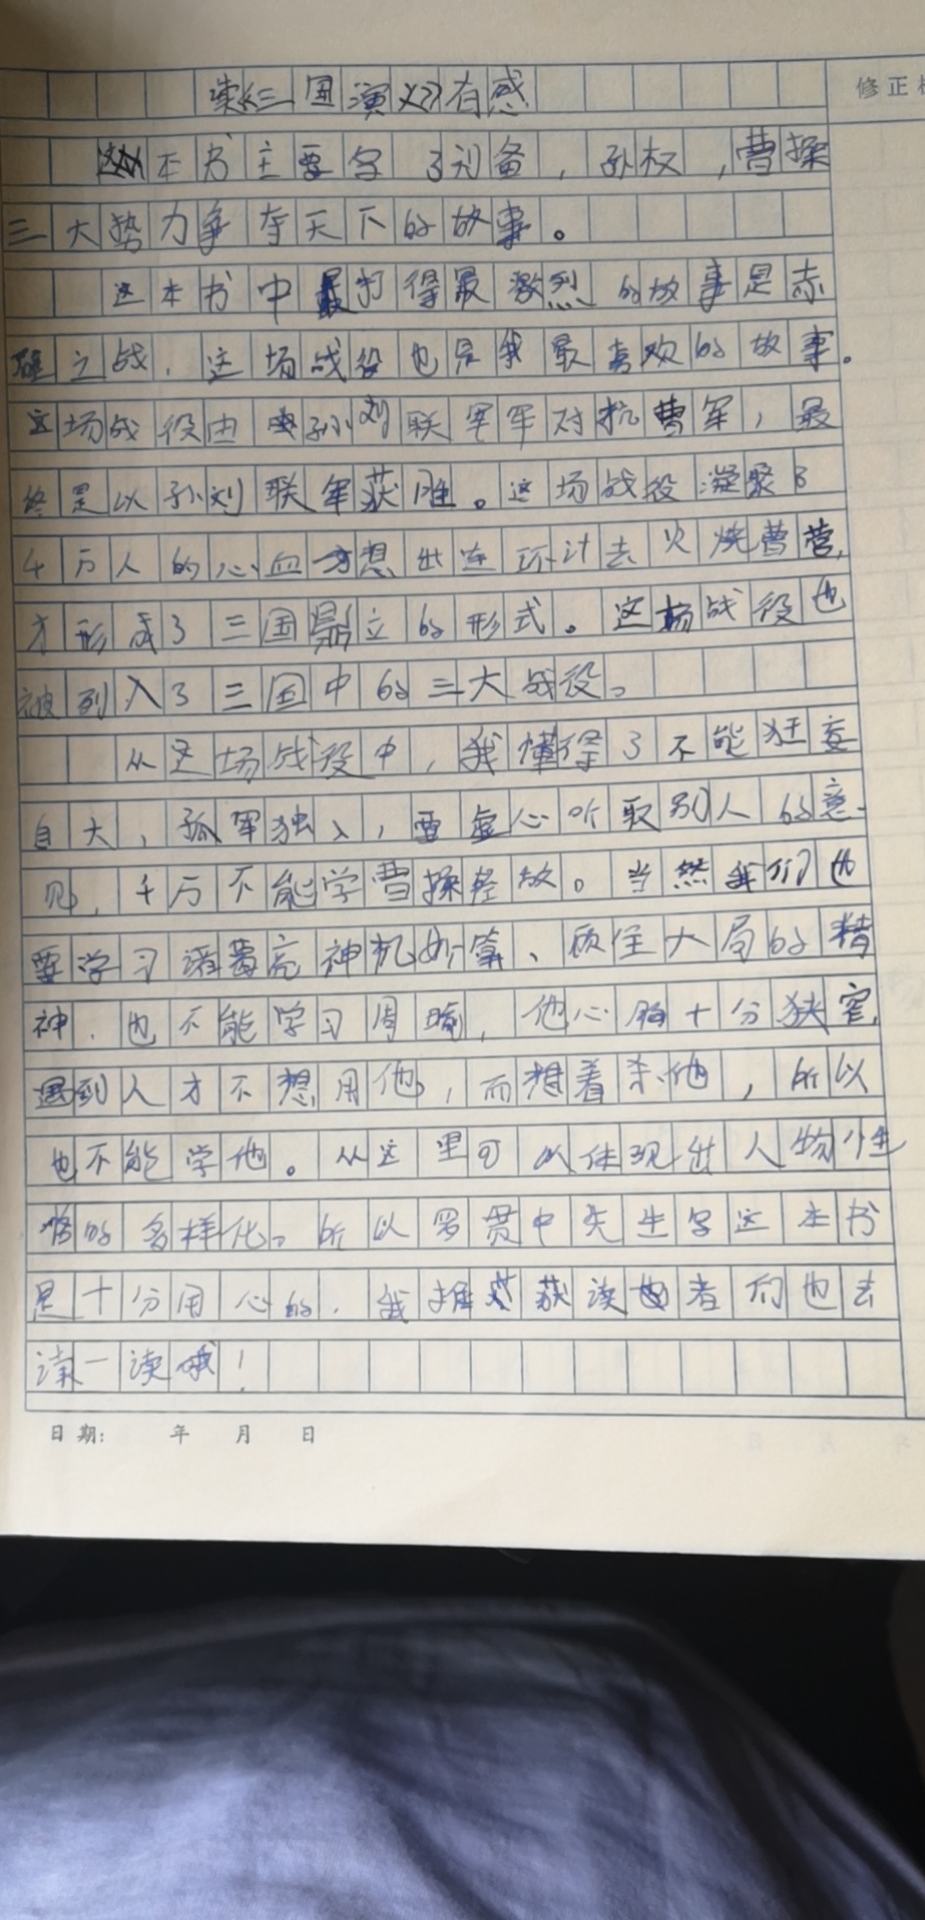 读《三国演义》有感
修正
这本书主要写了刘备，孙权，曹操
三大势力争夺天下的故事。
这本书中最打得最激烈的故事是赤
壁之战，这场战役也是我最喜欢的故事。
这场战役由孙刘联军军对抗曹军，最
终是以孙刘联军获胜。这场战役凝聚了
千万人的心血才想出连环计去火烧曹营，
才形成了三国鼎立的形式。这场战役也
被列入了三国中的三大战役。
从这场战役中，我懂得了不能狂妄
自大，孤军独入，要虚心听取别人的意
见，千万不能学曹操轻敌。当然我们也
要学习诸葛亮神机妙算、顾全大局的精
神，也不能学习周瑜，他心胸十分狭窄，
遇到人才不想用他，而想着杀他，所以
也不能学他。从这里可以体现出人物性
格的多样化。所以罗贯中先生写这本书
是十分用心的，我推荐读者们也去
读一读哦！
日期： 年 月 日